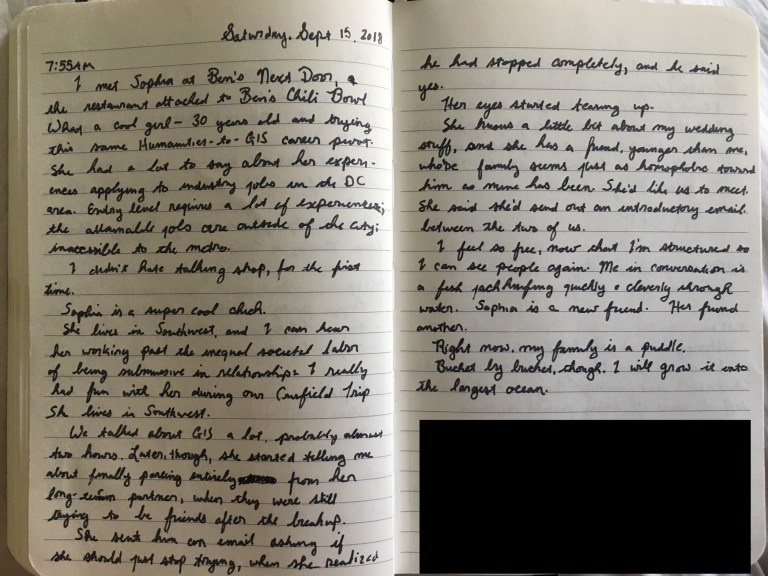 Saturday, Sept 15, 2018
7:55AM
I met Sophia at Ben's Next Door,
the restaurant attached to Ben's Chili Bowl
What a cool girl - 30 years old and trying
this same Humanities-to-GIS career pivot.
She had a lot to say about her experi-
ences applying to industry jobs in the DC
area. Entry level requires a lot of experience;
the attainable jobs are outside of the city;
inaccessible to the metro.
I didn't hate talking shop, for the first
time.
Sophia is a super cool chick.
She lives in Southwest, and I can hear
her working past the unequal societal labor
of being submissive in relationships. I really
had fun with her during our Canfield Trip
She lives in Southwest.
We talked about GIS a lot, probably almost
two hours. Later, though, she started telling me
about finally parting entirely from her
long-term partner, when they were still
trying to be friends after the breakup.
She sent him an email asking if
she should just stop trying, when she realized
he had stopped completely, and he said
yes.
Her eyes started tearing up.
She knows a little bit about my wedding
stuff, and she has a friend, younger than me,
who's family seems just as homophobic toward
him as mine has been. She'd like us to meet.
She said she'd send out an introductory email
between the two of us.
I feel so free, now that I'm structured so
I can see people again. Me in conversation is
a fish jackknifing quickly + cleverly through
water. Sophia is a new friend. Her friend
another.
Right now, my family is a puddle.
Bucket by bucket, though, I will grow it into
the largest ocean.